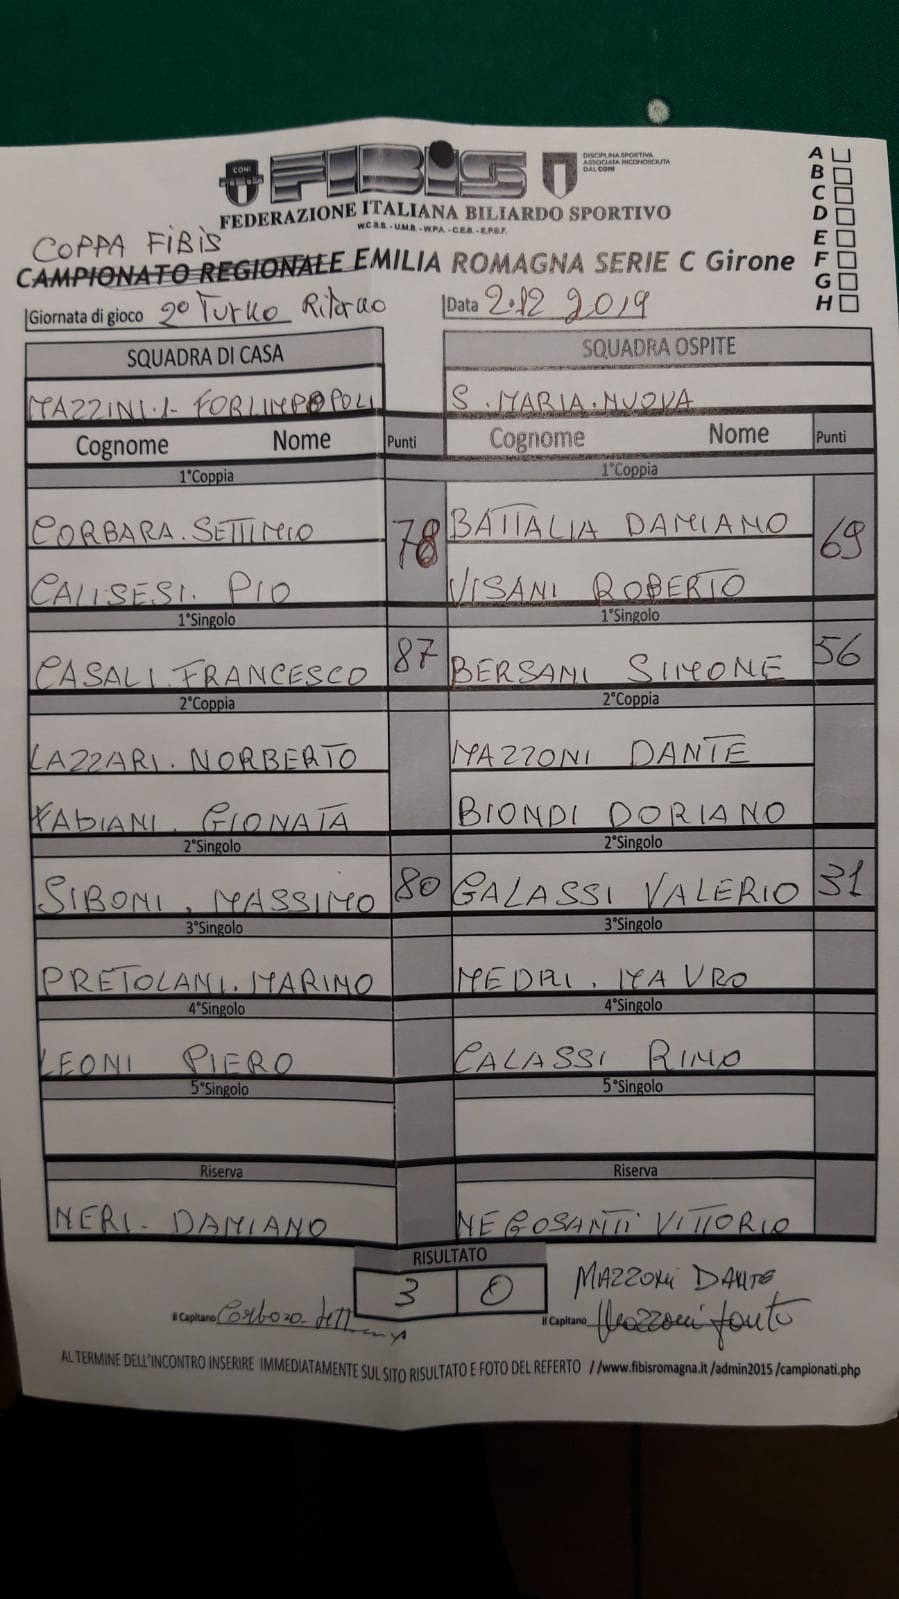 CONI
FIBIS
DISCIPLINA SPORTIVA
ASSOCIATA RICONOSCIUTA
DAL CONI
FEDERAZIONE ITALIANA BILIARDO SPORTIVO
W.C.B.S. - U.M.B. - W.P.A. - C.E.B. - E.P.B.F.
A
B
C
D
E
F
G
H
COPPA FIBIS
CAMPIONATO REGIONALE EMILIA ROMAGNA SERIE C Girone
Giornata di gioco 2° Turno Ritorno Data 2.12 2019
SQUADRA DI CASA SQUADRA OSPITE
MAZZINI.1- FORLIMPOPOLI S. MARIA. NUOVA
Cognome Nome Punti Cognome Nome Punti
1°Coppia 1°Coppia
CORBARA. SETTIMIO 78 BATTALIA DAMIANO 69
CALISESI. PIO VISANI ROBERTO
1°Singolo 1°Singolo
CASALI. FRANCESCO 87 BERSANI SIMONE 56
2°Coppia 2°Coppia
LAZZARI. NORBERTO MAZZONI DANTE
FABIANI. GIONATA BIONDI DORIANO
2°Singolo 2°Singolo
SIBONI, MASSIMO 80 GALASSI VALERIO 31
3°Singolo 3°Singolo
PRETOLANI. MARINO MEDRI. MAURO
4°Singolo 4°Singolo
LEONI PIERO GALASSI RINO
5°Singolo 5°Singolo
Riserva Riserva
NERI- DAMIANO NEGOSANTI VITTORIO
RISULTATO
3 0
MAZZONI DANTE
il Capitano il Capitano Mazzoni
AL TERMINE DELL'INCONTRO INSERIRE IMMEDIATAMENTE SUL SITO RISULTATO E FOTO DEL REFERTO //www.fibisromagna.it /admin2015 /campionati.php